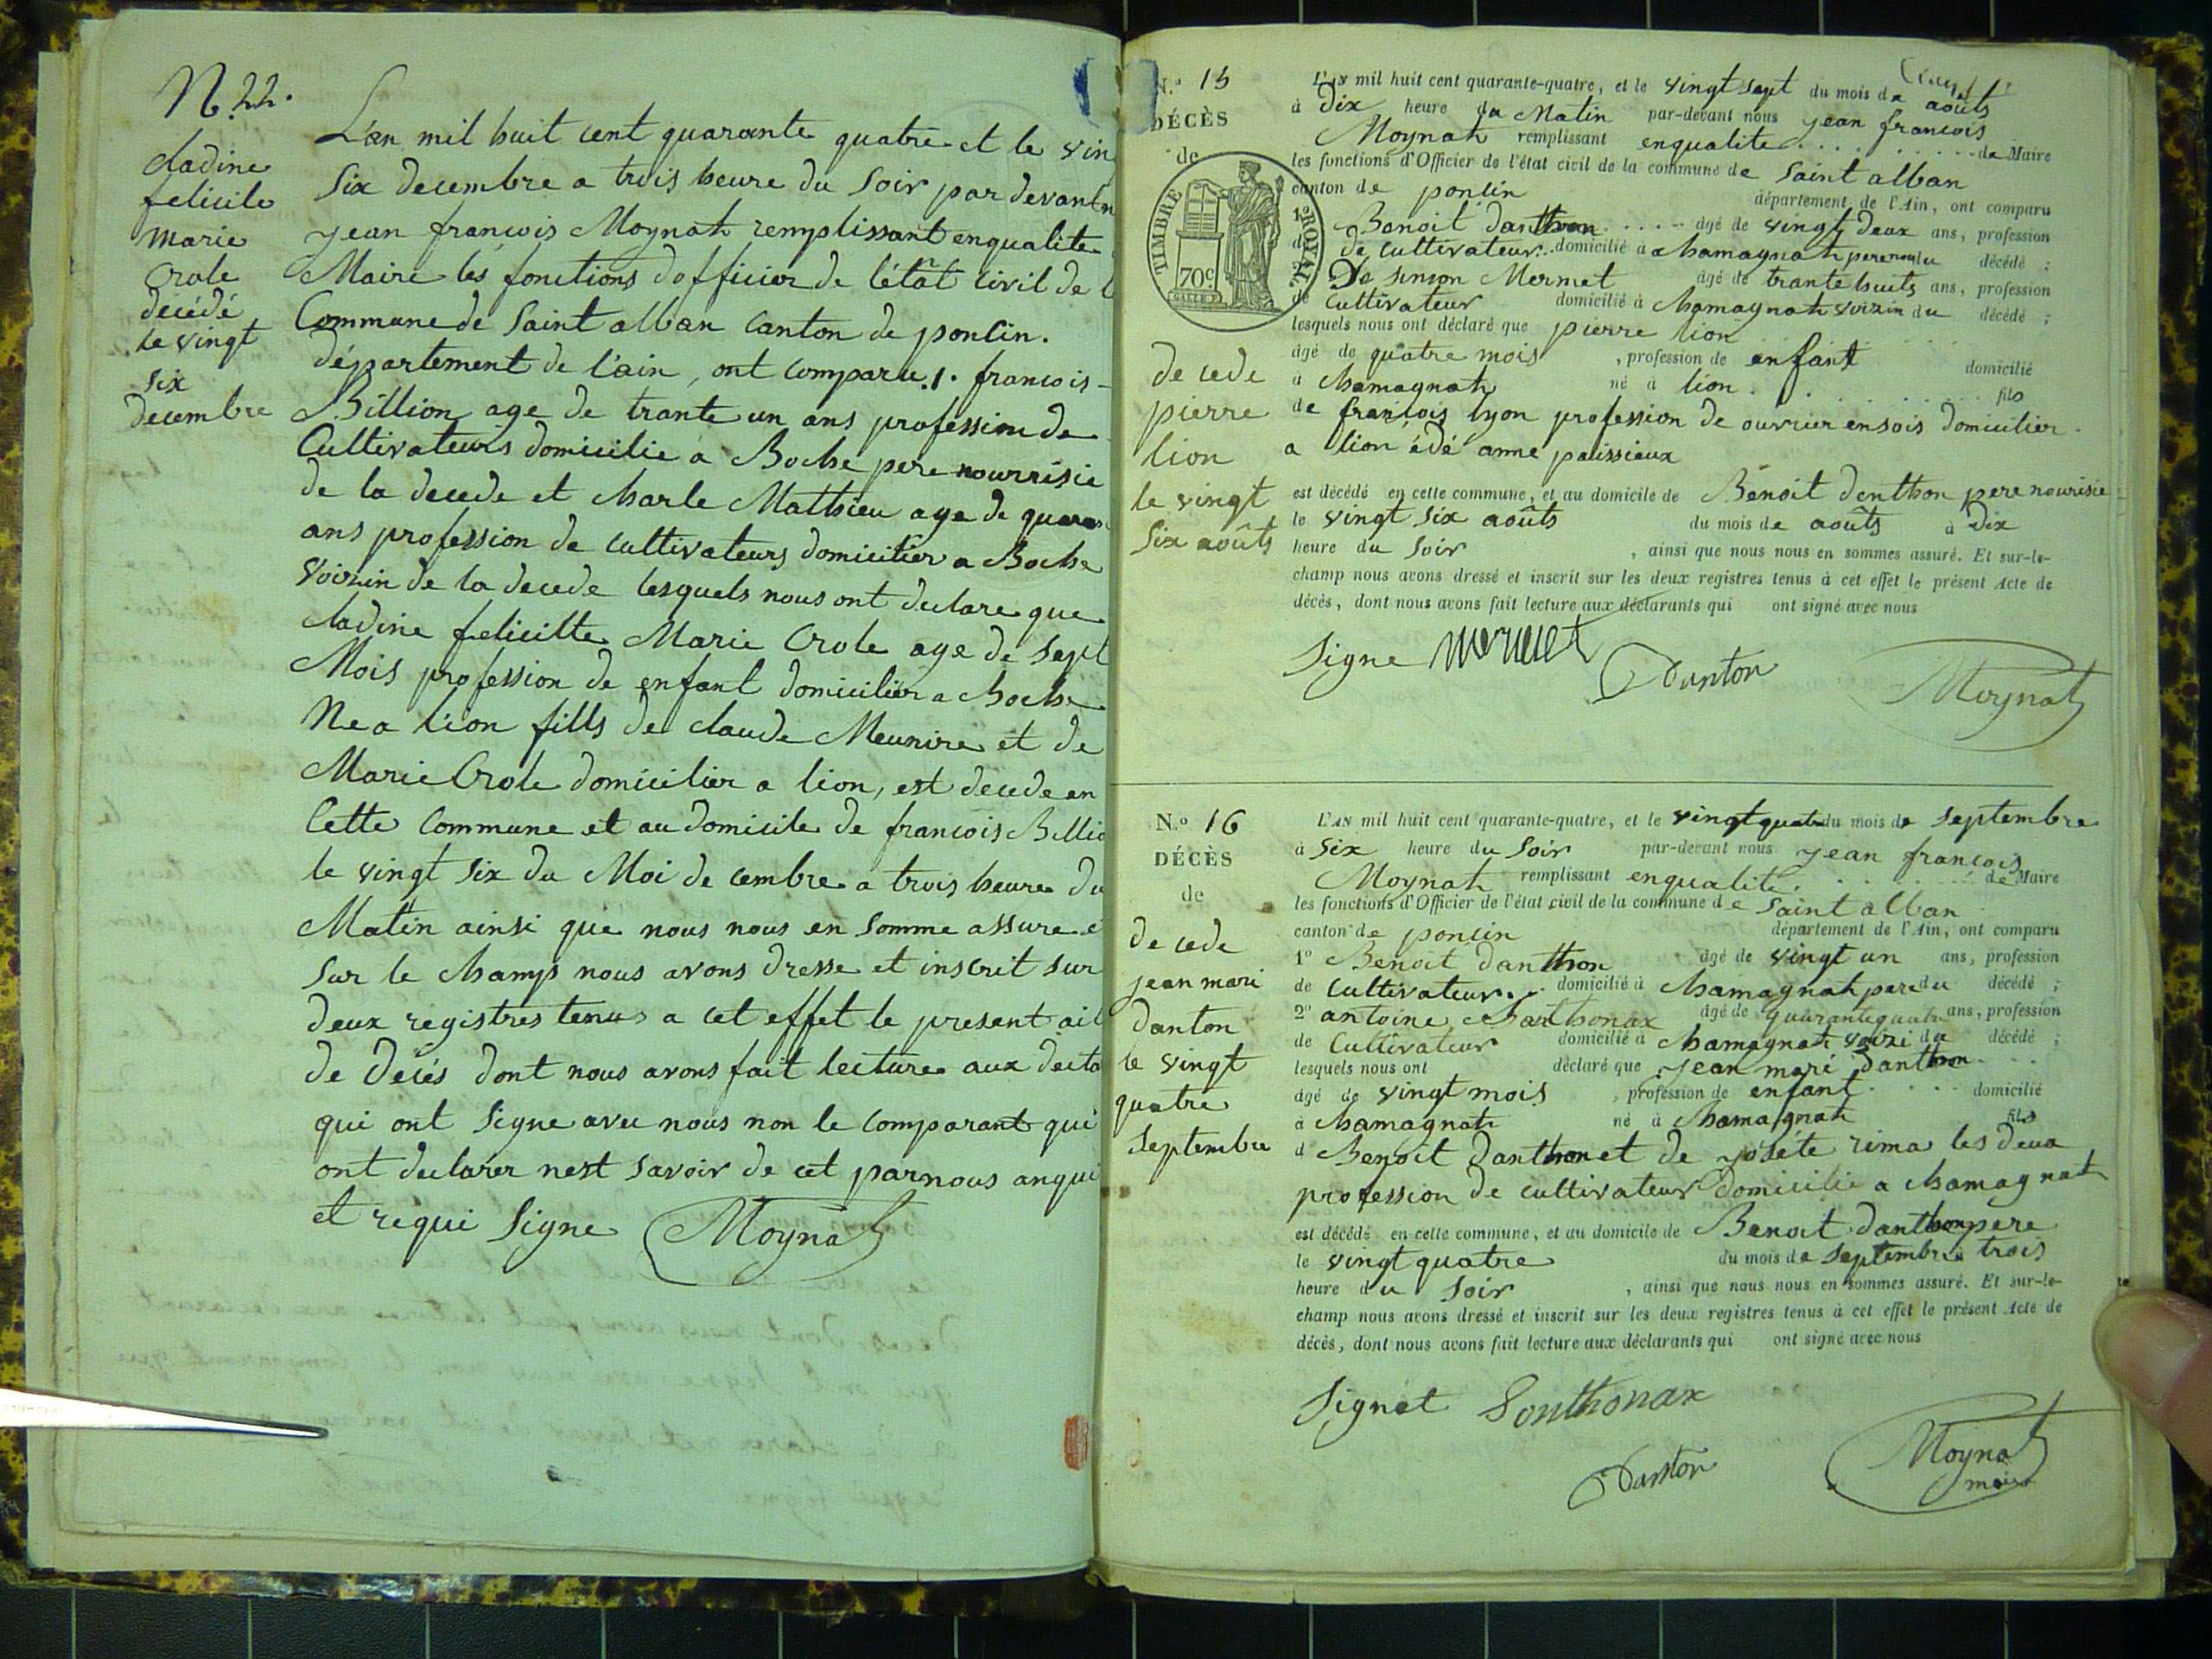 N. 22.
cladine
felicite
Marie
Crole
décédé
le vingt
six
decembre
L'an mil huit cent quarante quatre et le vin
six decembre a trois heure du soir par devant n
jean francois Moynat remplissant enqualite
Maire les fonctions d'officier de l'état civil de l
Commune de Saint alban canton de poncin.
département de l'ain, ont comparu, 1. francois
Billion age de trante un ans profession de
Cultivateurs domicilie a Boche pere nourrisie
de la decede et charle Mathieu age de quaran
ans profession de cultivateurs domicilier a Boche
Voizin de la decede lesquels nous ont declare que
cladine felicitte Marie Crole age de sept
Mois profession de enfant domicilier a Boche
Ne a lion fills de claude Meunire et de
Marie Crole domicilier a lion, est decede en
Cette Commune et au domicile de francois Billio
le vingt six du Moi de cembre a trois heure du
Matin ainsi que nous nous en somme assure e
sur le champ nous avons dresse et inscrit sur
deux registres tenus a cet effet le present
de Décès dont nous avons fait lecture aux decla
qui ont Signe avec nous non le comparant qui
ont declarer nest savoir de cet par nous anqui
et requi Signe Moynat
N.º 15
DÉCÈS
de
TIMBRE ROYAL
70c
decede
pierre
lion
le vingt
six août
L'AN mil huit cent quarante-quatre, et le vingt sept du mois de aoûts
à Dix heure du Matin par-devant nous jean francois
Moynat remplissant enqualite de Maire
les fonctions d'Officier de l'état civil de la commune de Saint alban
canton de poncin département de l'Ain, ont comparu
1º Benoit danthon âgé de vingt deux ans, profession
de cultivateur domicilié à chamagnat pere du décédé;
De Mermet âgé de trante huits ans, profession
de Cultivateur domicilié à chamagnat voizin du décédé;
lesquels nous ont déclaré que pierre lion
âgé de quatre mois, profession de enfant domicilié
à chamagnat né à lion fils
de francois lyon profession de ouvrier ensois domicilier
a lion édé anne paissieux
est décédé en cette commune, et au domicile de Benoit denthon pere nourisie
le vingt six aoûts du mois de aoûts à Dix
heure du Soir, ainsi que nous nous en sommes assuré. Et sur-le-
champ nous avons dressé et inscrit sur les deux registres tenus à cet effet le présent Acte de
décès, dont nous avons fait lecture aux déclarants qui ont signé avec nous
Signe Mermet Danton Moynat
N.º 16
DÉCÈS
de
decede
jean mari
danton
le vingt
quatre
septembre
L'AN mil huit cent quarante-quatre, et le vingt quatre du mois de septembre
à six heure du Soir par-devant nous jean francois
Moynat remplissant enqualite de Maire
les fonctions d'Officier de l'état civil de la commune de Saint alban
canton de poncin département de l'Ain, ont comparu
1º Benoit danthon âgé de vingt un ans, profession
de Cultivateur domicilié à chamagnat pere du décédé;
2º antoine Santhonax âgé de quarante quatre ans, profession
de Cultivateur domicilié à chamagnat voizi du décédé;
lesquels nous ont déclaré que jean mari danthon
âgé de vingt mois, profession de enfant domicilié
à chamagnat né à chamagnat fils
d Benoit danthon et de joséte rima les deux
profession de cultivateur domicilie a chamagnat
est décédé en cette commune, et au domicile de Benoit danthon pere
le vingt quatre du mois de septembre à trois
heure du Soir, ainsi que nous nous en sommes assuré. Et sur-le-
champ nous avons dressé et inscrit sur les deux registres tenus à cet effet le présent Acte de
décès, dont nous avons fait lecture aux déclarants qui ont signé avec nous
Signet Sonthonax
Danton Moynat
maire